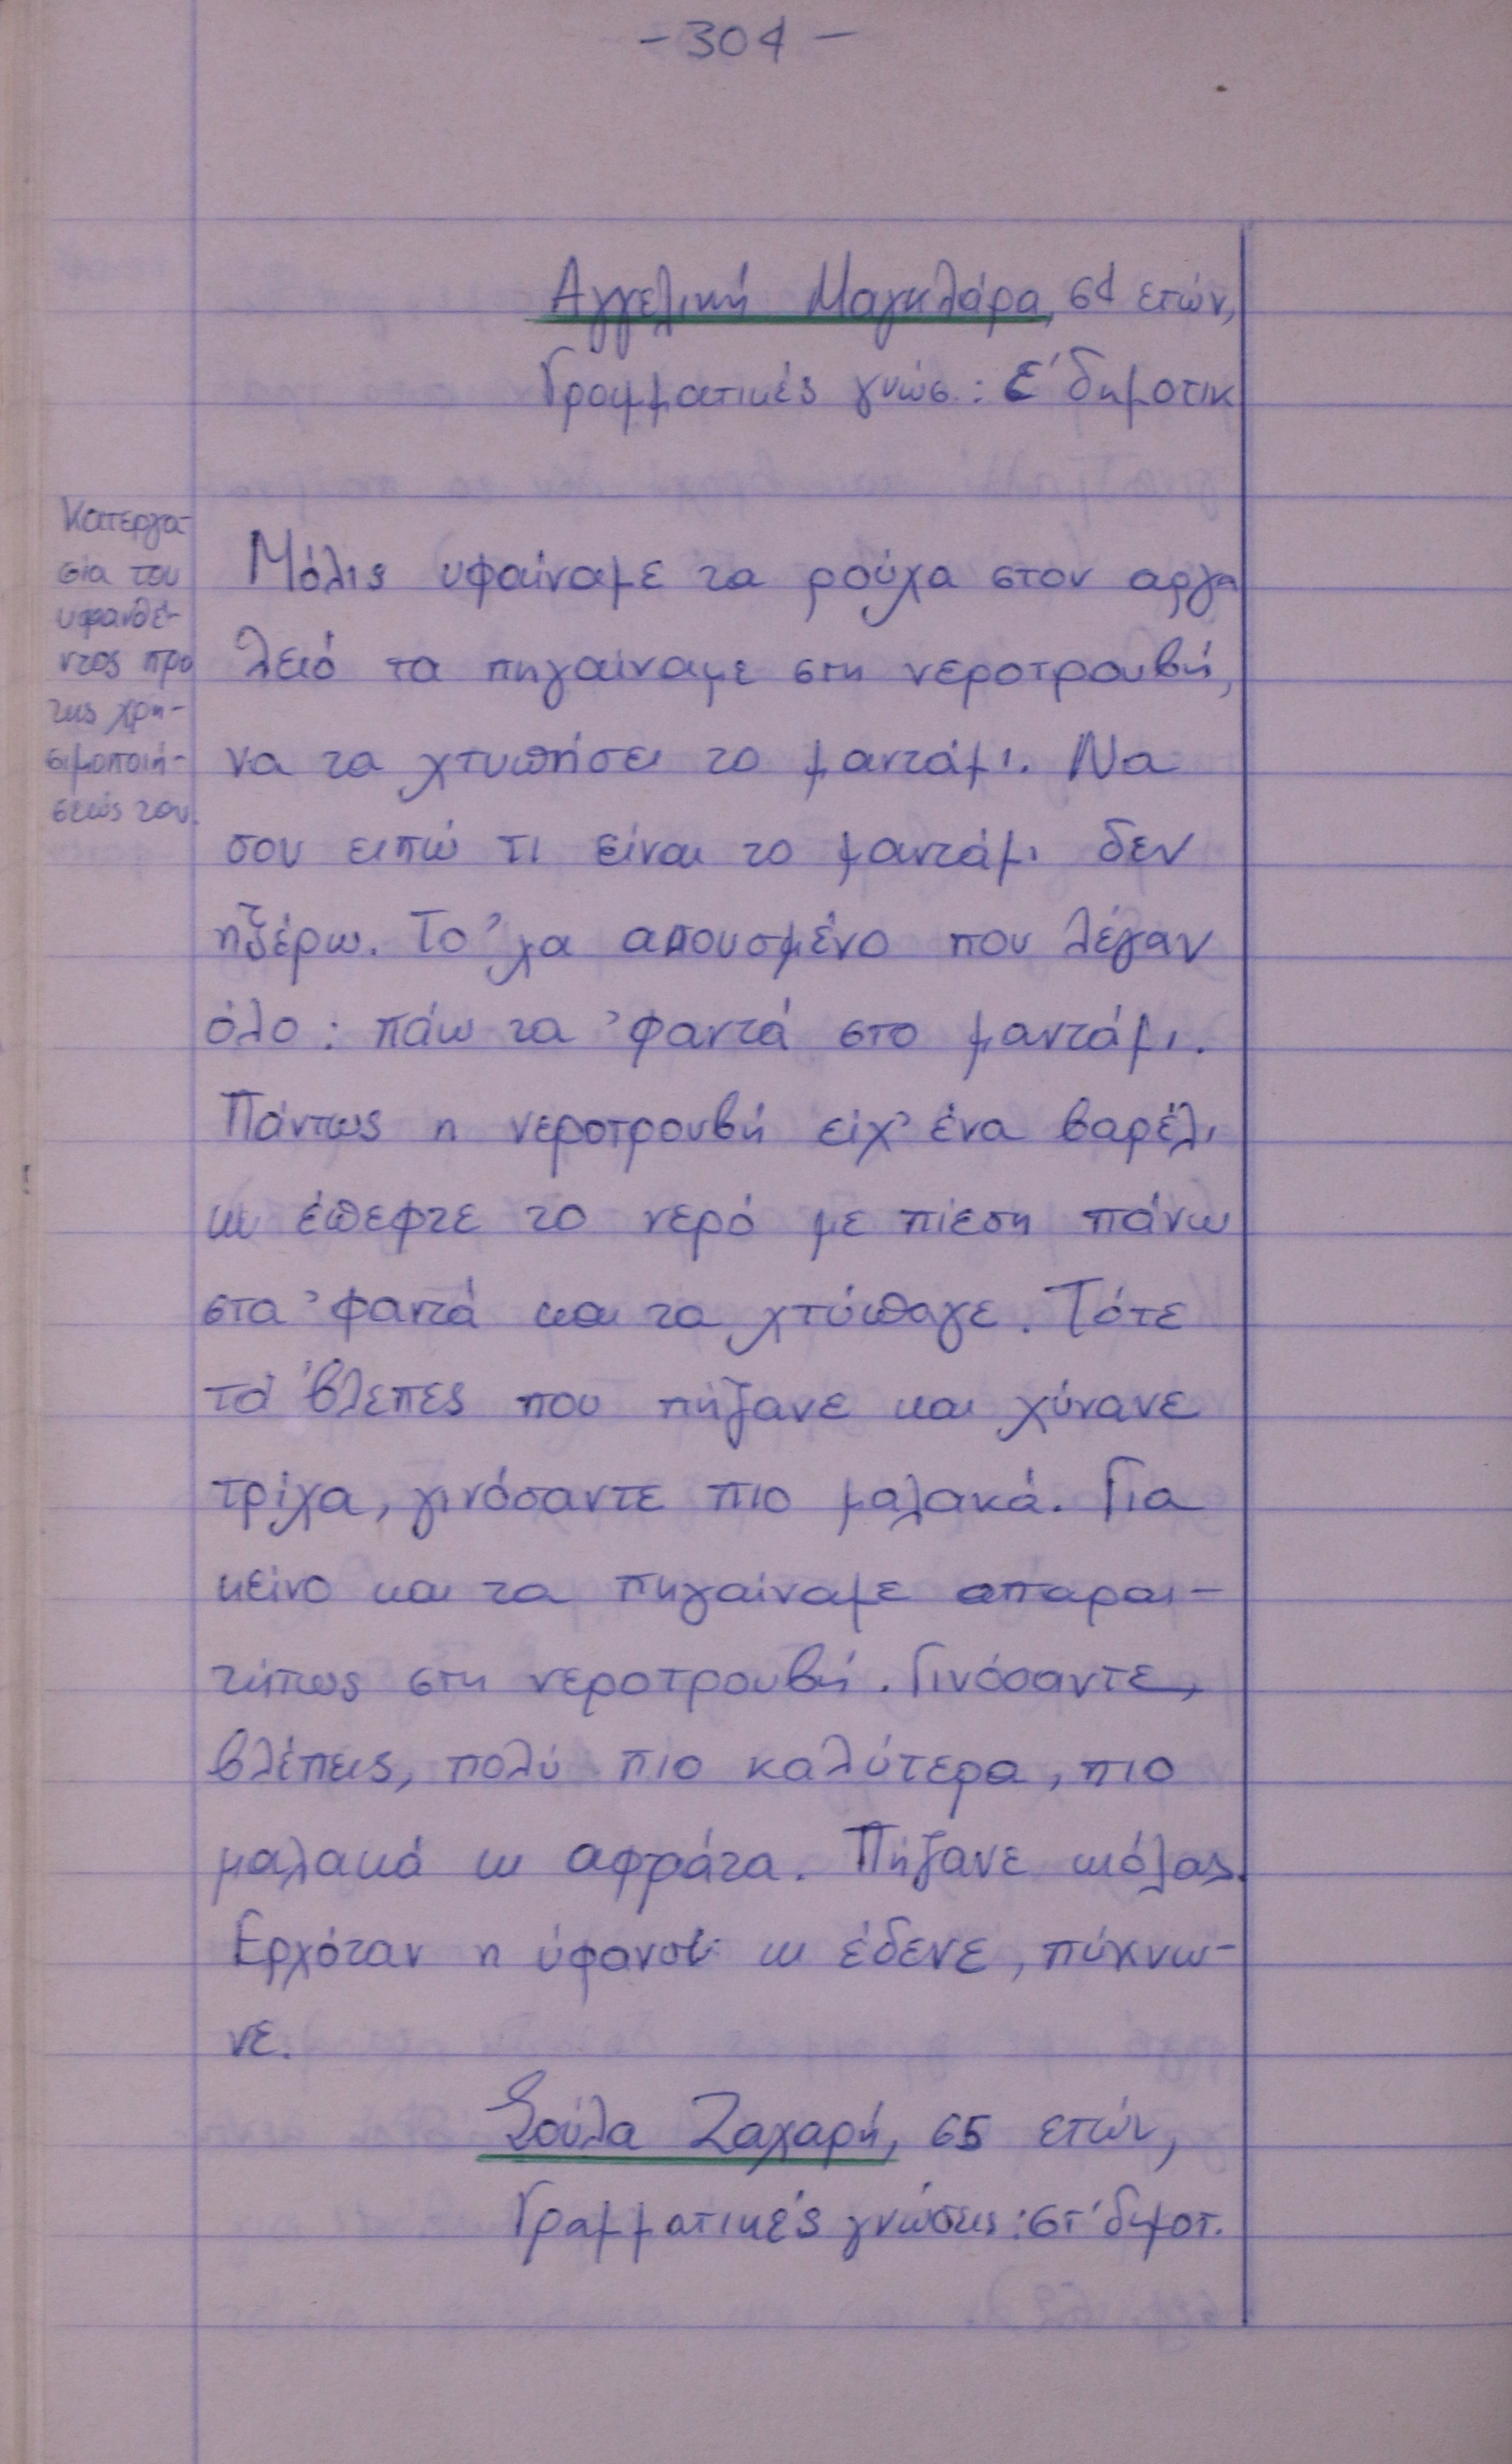 -304-
Αγγελική Μαγκλάρα, 64 ετών,
Γραμματικές γνώσ.: Ε' δημοτικ
Κατεργα-
σία του
υφανθέ-
ντος προ
της χρη-
σιμοποιή-
σεώς του.
Μόλις υφαίναμε τα ρούχα στον αργα
λειό τα πηγαίναμε στη νεροτρουβή,
να τα χτυπήσει το μαντάμι. Να
σου ειπώ τι είναι το μαντάμι δεν
ηξέρω. Το 'χα απουσμένο που λέγαν
όλο: πάω τα 'φαντά στο μαντάμι.
Πάντως η νεροτρουβή είχ' ένα βαρέλι
κι έπεφτε το νερό με πίεση πάνω
στα 'φαντά και τα χτύπαγε. Τότε
τά 'βλεπες που πήζανε και χύνανε
τρίχα, γινόσαντε πιο μαλακά. Για
κείνο και τα πηγαίναμε απαραι-
τήτως στη νεροτρουβή. Γινόσαντε,
βλέπεις, πολύ πιο καλύτερα, πιο
μαλακά κι αφράτα. Πήζανε κιόλας.
Ερχόταν η ύφανση κι έδενε, πύκνω-
νε.
Σούλα Ζαχαρή, 65 ετών,
Γραμματικές γνώσεις: ΣΤ' δημοτ.